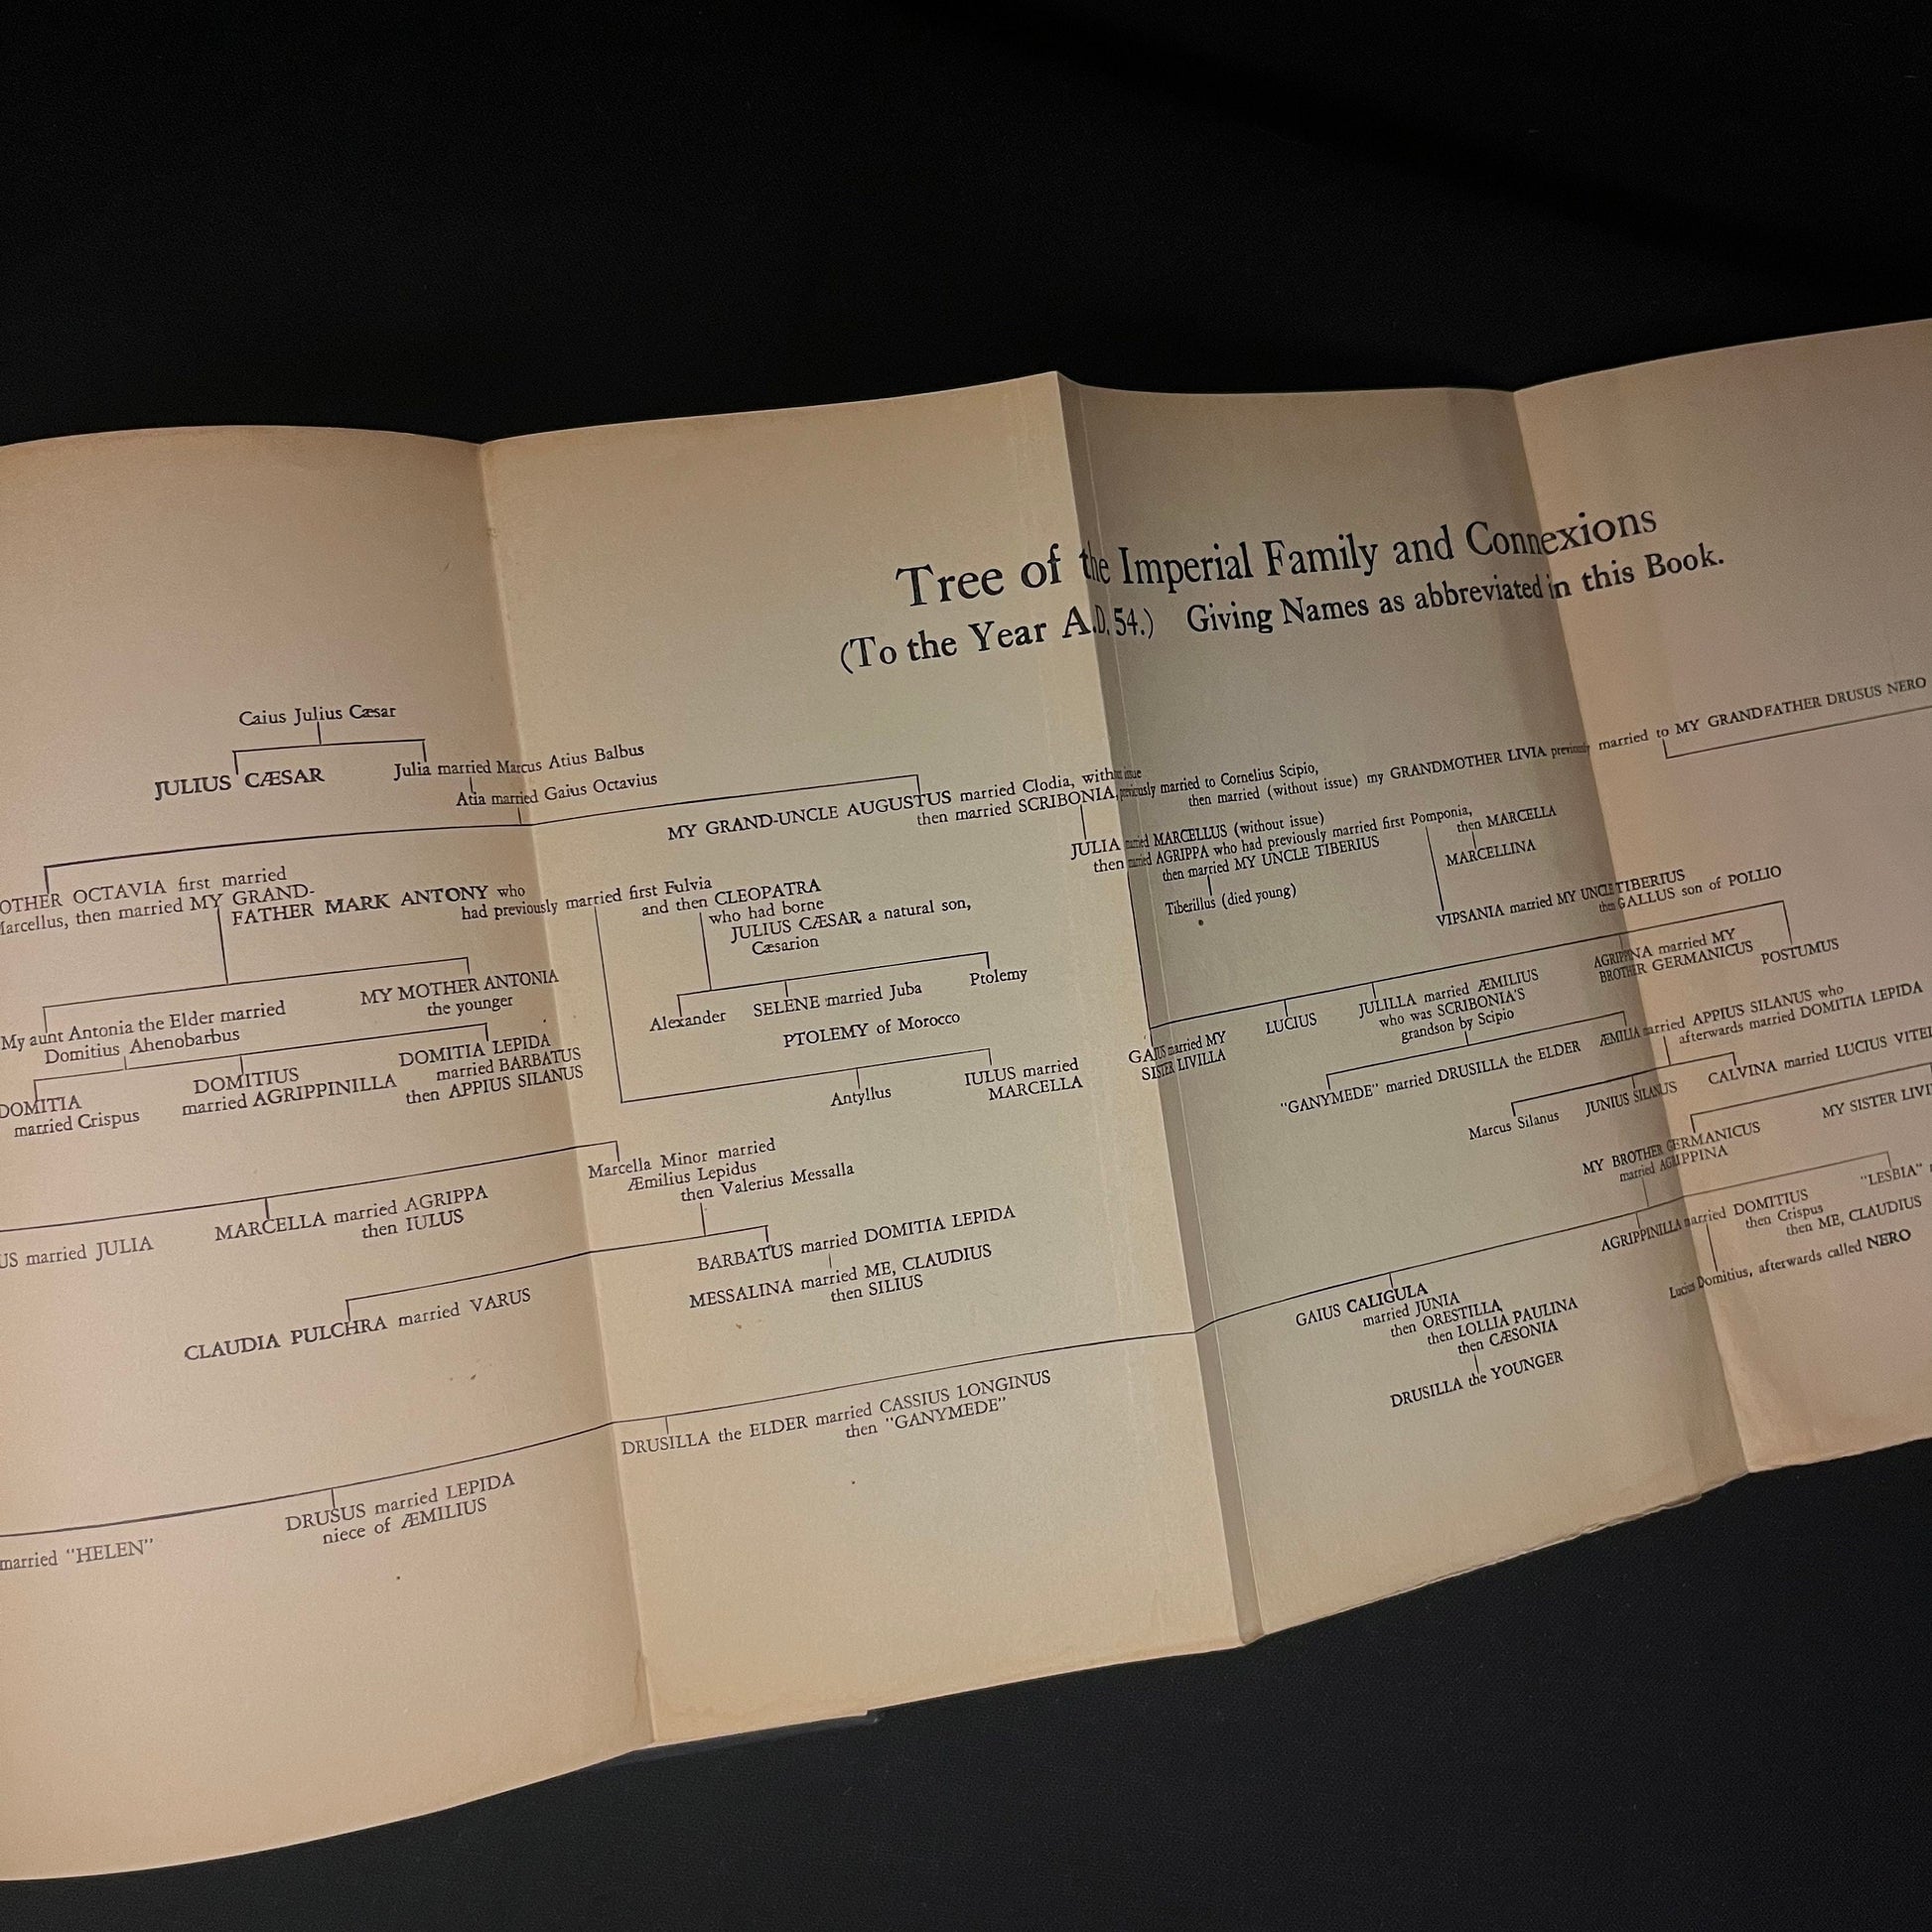 Tree of the Imperial Family and Connexions
(To the Year A.D. 54.) Giving Names as abbreviated in this Book.
Caius Julius Cæsar
JULIUS CÆSAR
Julia married Marcus Atius Balbus
Atia married Gaius Octavius
MY GRAND-UNCLE AUGUSTUS married Clodia, without issue
then married SCRIBONIA, previously married to Cornelius Scipio,
then married (without issue) my GRANDMOTHER LIVIA previously married to MY GRANDFATHER DRUSUS NERO
OTHER OCTAVIA first married
Marcellus, then married MY GRAND-
FATHER MARK ANTONY who
had previously married first Fulvia
and then CLEOPATRA
who had borne
JULIUS CÆSAR a natural son,
Cæsarion
JULIA married MARCELLUS (without issue)
then married AGRIPPA who had previously married first Pomponia,
then MARCELLA
then married MY UNCLE TIBERIUS
MARCELLINA
Tiberillus (died young)
VIPSANIA married MY UNCLE TIBERIUS
then GALLUS son of POLLIO
My aunt Antonia the Elder married
Domitius Ahenobarbus
MY MOTHER ANTONIA
the younger
Alexander
SELENE married Juba
Ptolemy
PTOLEMY of Morocco
GAIUS married MY
SISTER LIVILLA
LUCIUS
JULILLA married ÆMILIUS
who was SCRIBONIA'S
grandson by Scipio
AGRIPPINA married MY
BROTHER GERMANICUS
POSTUMUS
DOMITIA
married Crispus
DOMITIUS
married AGRIPPINILLA
DOMITIA LEPIDA
married BARBATUS
then APPIUS SILANUS
Antyllus
IULUS married
MARCELLA
"GANYMEDE" married DRUSILLA the ELDER
ÆMILIA married APPIUS SILANUS who
afterwards married DOMITIA LEPIDA
Marcus Silanus
JUNIUS SILANUS
CALVINA married LUCIUS VITEL
US married JULIA
MARCELLA married AGRIPPA
then IULUS
Marcella Minor married
Æmilius Lepidus
then Valerius Messalla
MY BROTHER GERMANICUS
married AGRIPPINA
MY SISTER LIVI
CLAUDIA PULCHRA married VARUS
BARBATUS married DOMITIA LEPIDA
MESSALINA married ME, CLAUDIUS
then SILIUS
GAIUS CALIGULA
married JUNIA
then ORESTILLA
then LOLLIA PAULINA
then CÆSONIA
DRUSILLA the YOUNGER
AGRIPPINILLA married DOMITIUS
then Crispus
then ME, CLAUDIUS
"LESBIA"
Lucius Domitius, afterwards called NERO
married "HELEN"
DRUSUS married LEPIDA
niece of ÆMILIUS
DRUSILLA the ELDER married CASSIUS LONGINUS
then "GANYMEDE"